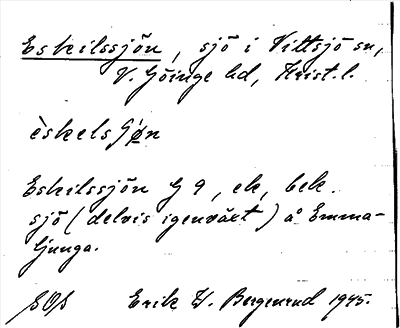 Eskilssjön, sjö i Vittsjö sn,
V. Göinge hd, Krist. l.
èskelsʃø̀n
Eskilssjön G 9, ek, bek.
sjö (delvis igenväxt) å Emma-
ljunga.
SOS Erik W. Bergenrud 1945.